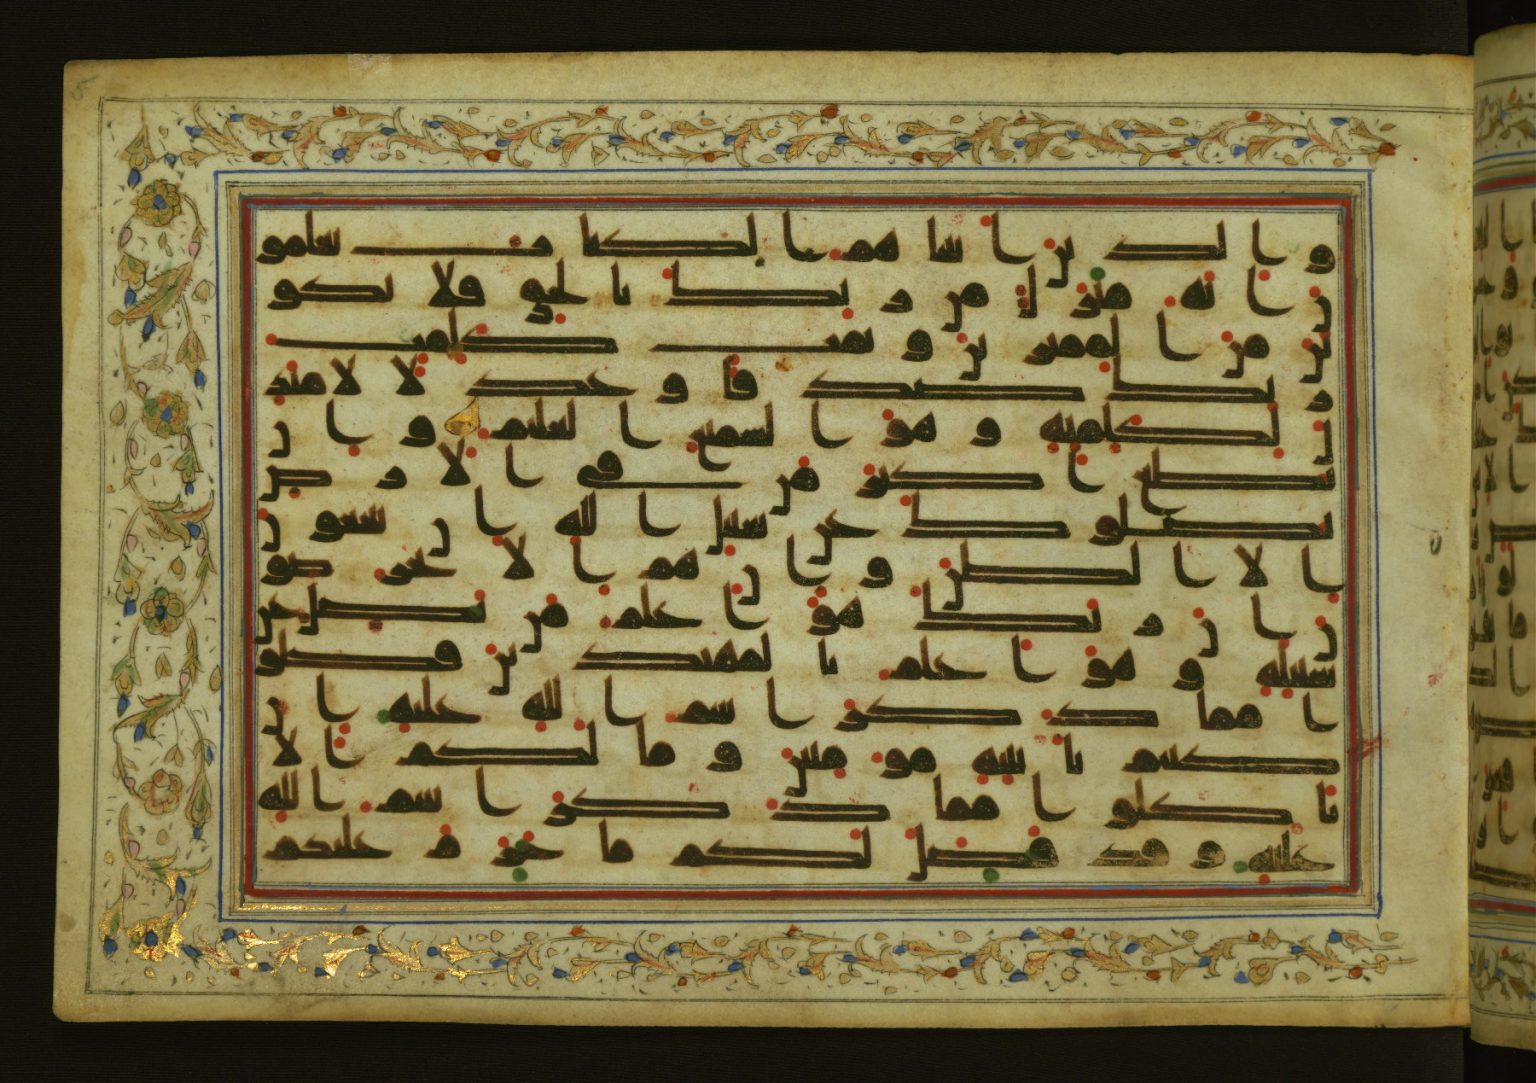 والذين اتينهم الكتاب يعلمو
ن انه منزل من ربك بالحق فلا تكو
نن من الممترين وتمت كلمت
ربك صدقا وعدلا لا مبد
ل لكلمته وهو السميع العليم وان
تطع اكثر من في الارض
يضلوك عن سبيل الله ان يتبعون
الا الظن وان هم الا يخرصو
ن ان ربك هو اعلم من يضل عن
سبيله وهو اعلم بالمهتدين فكلو
ا مما ذكر اسم الله عليه ان
كنتم بايته مومنين وما لكم الا
تاكلوا مما ذكر اسم الله
عليه وقد فصل لكم ما حرم عليكم